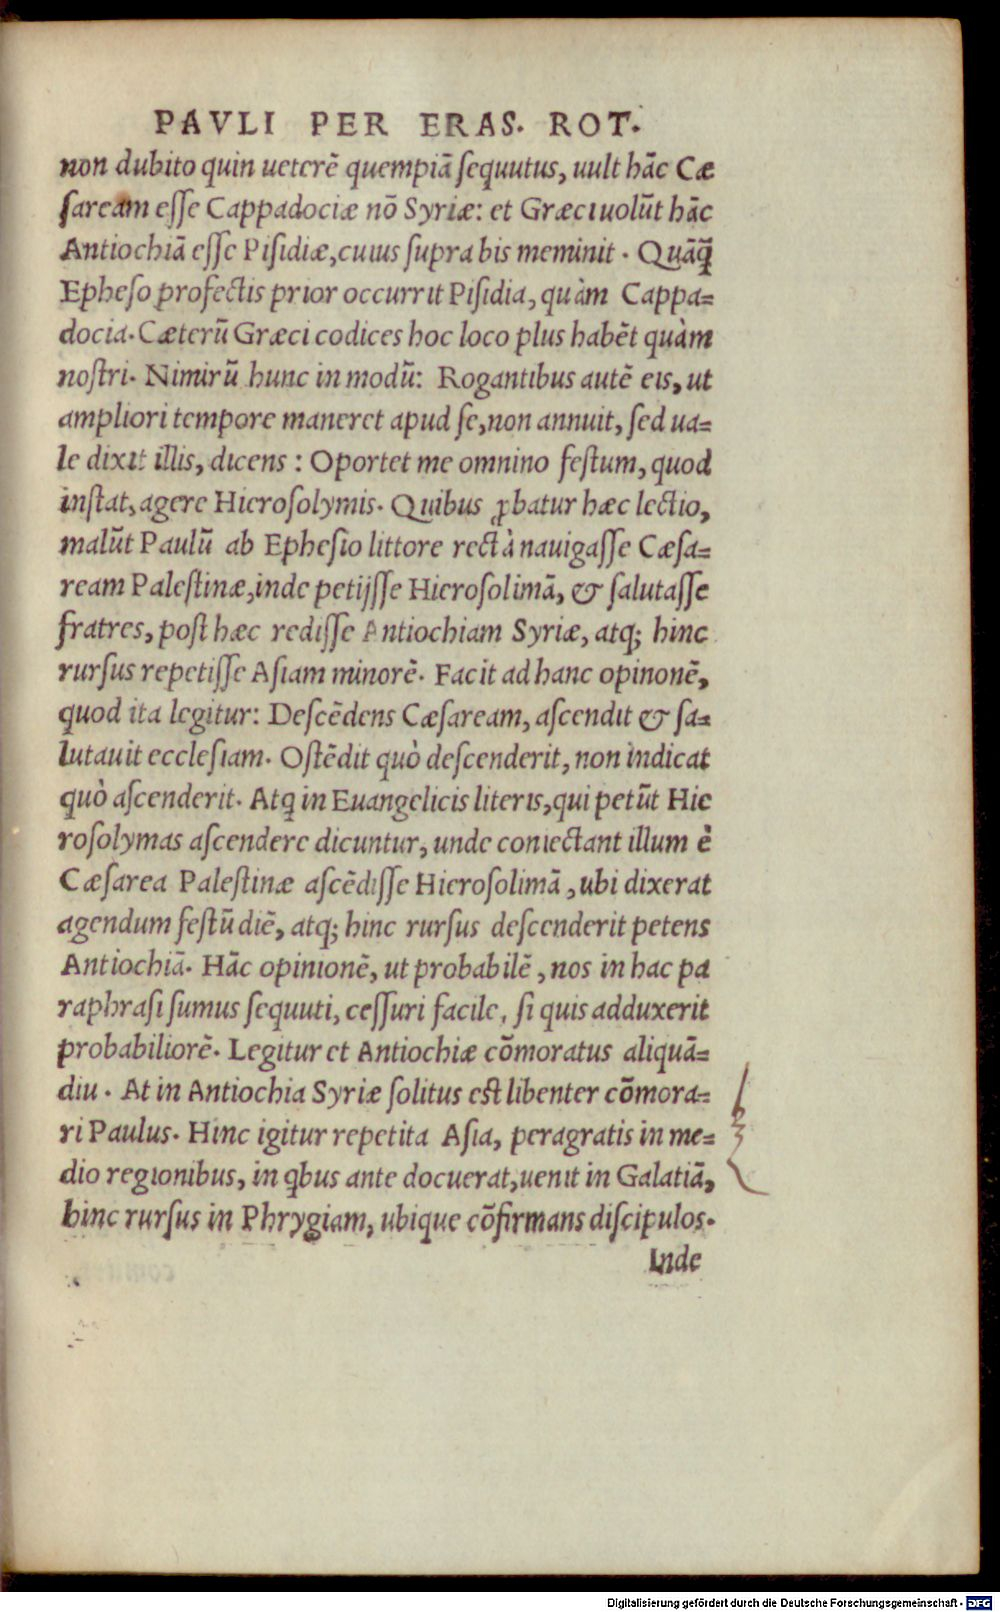 PAVLI PER ERAS. ROT.
non dubito quin ueterē quempiā ſequutus, uult hāc Cæ
ſaream eſſe Cappadociæ nō Syriæ: et Græci uolūt hāc
Antiochiā eſſe Piſidiæ, cuius ſupra bis meminit. Quāq̄
Epheſo profectis prior occurrit Piſidia, quàm Cappa=
docia. Cæterū Græci codices hoc loco plus habēt quàm
noſtri. Nimirū hunc in modū: Rogantibus autē eis, ut
ampliori tempore maneret apud ſe, non annuit, ſed ua=
le dixit illis, dicens: Oportet me omnino feſtum, quod
inſtat, agere Hieroſolymis. Quibus ꝓbatur hæc lectio,
malūt Paulū ab Epheſio littore rectà nauigaſſe Cæſa=
ream Paleſtinæ, inde petijſſe Hieroſolimā, & ſalutaſſe
fratres, poſt hæc rediſſe Antiochiam Syriæ, atq; hinc
rurſus repetiſſe Aſiam minorē. Facit ad hanc opinonē,
quod ita legitur: Deſcēdens Cæſaream, aſcendit & ſa=
lutauit eccleſiam. Oſtēdit quò deſcenderit, non indicat
quò aſcenderit. Atq̄ in Euangelicis literis, qui petūt Hie
roſolymas aſcendere dicuntur, unde coniectant illum è
Cæſarea Paleſtinæ aſcēdiſſe Hieroſolimā, ubi dixerat
agendum feſtū diē, atq; hinc rurſus deſcenderit petens
Antiochiā. Hāc opinionē, ut probabilē, nos in hac pa
raphraſi ſumus ſequuti, ceſſuri facile, ſi quis adduxerit
probabiliorē. Legitur et Antiochiæ cōmoratus aliquā=
diu. At in Antiochia Syriæ ſolitus eſt libenter cōmora=
ri Paulus. Hinc igitur repetita Aſia, peragratis in me=
dio regionibus, in qbus ante docuerat, uenit in Galatiā,
hinc rurſus in Phrygiam, ubique cōfirmans diſcipulos.
Inde
Digitalisierung gefördert durch die Deutsche Forschungsgemeinschaft - DFG